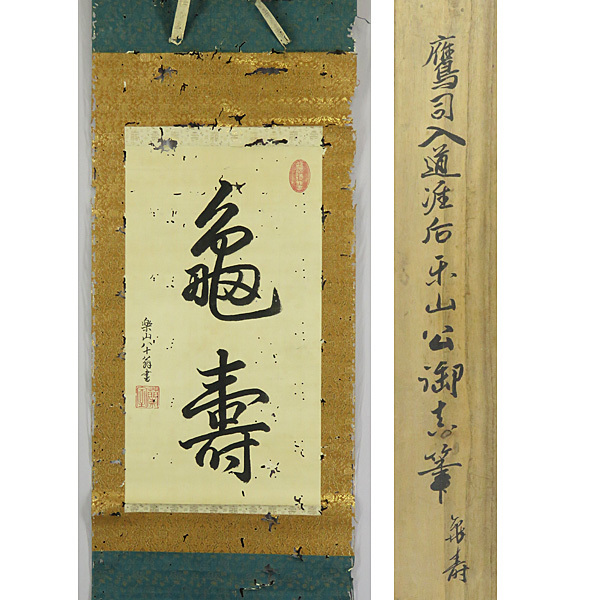 龜壽
樂山八十翁書
鷹司入道准后乐山公御真筆
龜寿